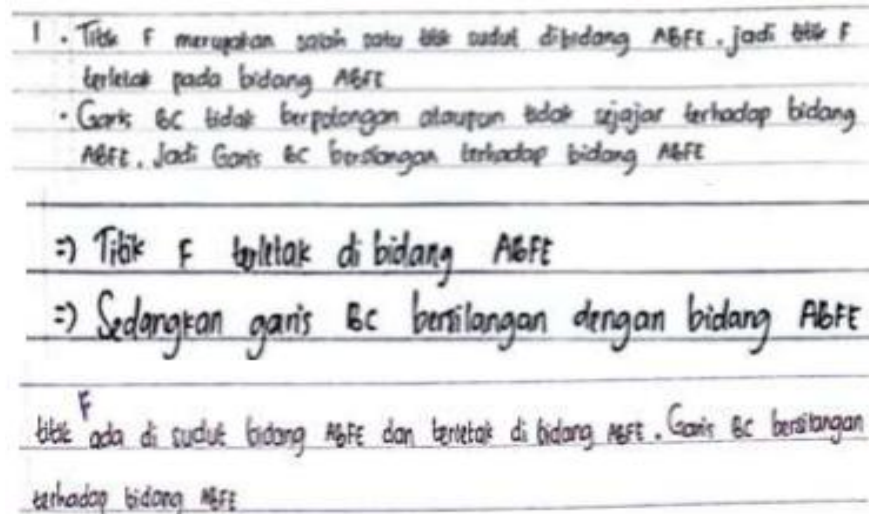 1. Titik F merupakan salah satu titik sudut dibidang ABFE. jadi titik F
terletak pada bidang ABFE
• Garis BC tidak berpotongan ataupun tidak sejajar terhadap bidang
ABFE. Jadi Garis BC bersilangan terhadap bidang ABFE
=) Titik F terletak di bidang ABFE
=) Sedangkan garis BC bersilangan dengan bidang ABFE
titik F ada di sudut bidang ABFE dan terletak di bidang ABFE. Garis BC bersilangan
terhadap bidang ABFE